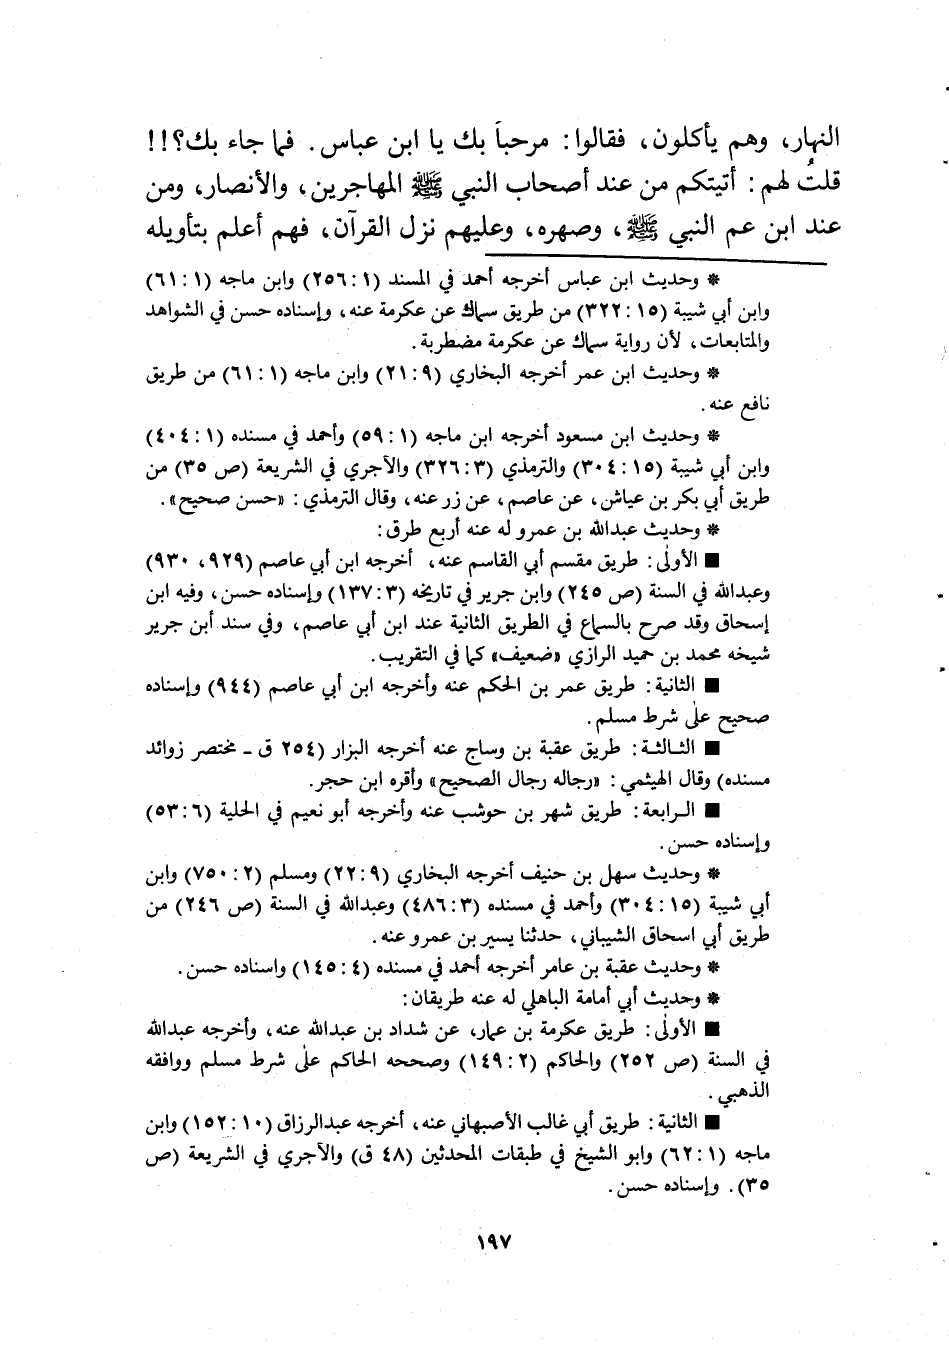 النهار، وهم يأكلون، فقالوا: مرحباً بك يا ابن عباس. فما جاء بك؟!!
قلتُ لهم: أتيتكم من عند أصحاب النبي ﷺ المهاجرين، والأنصار، ومن
عند ابن عم النبي ﷺ، وصهره، وعليهم نزل القرآن، فهم أعلم بتأويله
* وحديث ابن عباس أخرجه أحمد في المسند (١: ٢٥٦) وابن ماجه (١: ٦١)
وابن أبي شيبة (١٥: ٣٢٢) من طريق سماك عن عكرمة عنه، وإسناده حسن في الشواهد
والمتابعات، لأن رواية سماك عن عكرمة مضطربة.
* وحديث ابن عمر أخرجه البخاري (٩: ٢١) وابن ماجه (١: ٦١) من طريق
نافع عنه.
* وحديث ابن مسعود أخرجه ابن ماجه (١: ٥٩) وأحمد في مسنده (١: ٤٠٤)
وابن أبي شيبة (١٥: ٣٠٤) والترمذي (٣: ٣٢٦) والآجري في الشريعة (ص ٣٥) من
طريق أبي بكر بن عياش، عن عاصم، عن زر عنه، وقال الترمذي: «حسن صحيح».
* وحديث عبدالله بن عمرو له عنه أربع طرق:
■ الأولى: طريق مقسم أبي القاسم عنه، أخرجه ابن أبي عاصم (٩٢٩، ٩٣٠)
وعبدالله في السنة (ص ٢٤٥) وابن جرير في تاريخه (٣: ١٣٧) وإسناده حسن، وفيه ابن
إسحاق وقد صرح بالسماع في الطريق الثانية عند ابن أبي عاصم، وفي سند أبن جرير
شيخه محمد بن حميد الرازي «ضعيف» كما في التقريب.
■ الثانية: طريق عمر بن الحكم عنه وأخرجه ابن أبي عاصم (٩٤٤) وإسناده
صحيح على شرط مسلم.
■ الثالثة: طريق عقبة بن وساج عنه أخرجه البزار (٢٥٤ ق - مختصر زوائد
مسنده) وقال الهيثمي: «رجاله رجال الصحيح» وأقره ابن حجر.
■ الرابعة: طريق شهر بن حوشب عنه وأخرجه أبو نعيم في الحلية (٦: ٥٣)
وإسناده حسن.
* وحديث سهل بن حنيف أخرجه البخاري (٩: ٢٢) ومسلم (٢: ٧٥٠) وابن
أبي شيبة (١٥: ٣٠٤) وأحمد في مسنده (٣: ٤٨٦) وعبدالله في السنة (ص ٢٤٦) من
طريق أبي اسحاق الشيباني، حدثنا يسير بن عمرو عنه.
* وحديث عقبة بن عامر أخرجه أحمد في مسنده (٤: ١٤٥) واسناده حسن.
* وحديث أبي أمامة الباهلي له عنه طريقان:
■ الأولى: طريق عكرمة بن عمار، عن شداد بن عبدالله عنه، وأخرجه عبدالله
في السنة (ص ٢٥٢) والحاكم (٢: ١٤٩) وصححه الحاكم على شرط مسلم ووافقه
الذهبي.
■ الثانية: طريق أبي غالب الأصبهاني عنه، أخرجه عبدالرزاق (١٠: ١٥٢) وابن
ماجه (١: ٦٢) وابو الشيخ في طبقات المحدثين (٤٨ ق) والآجري في الشريعة (ص
٣٥). وإسناده حسن.
١٩٧